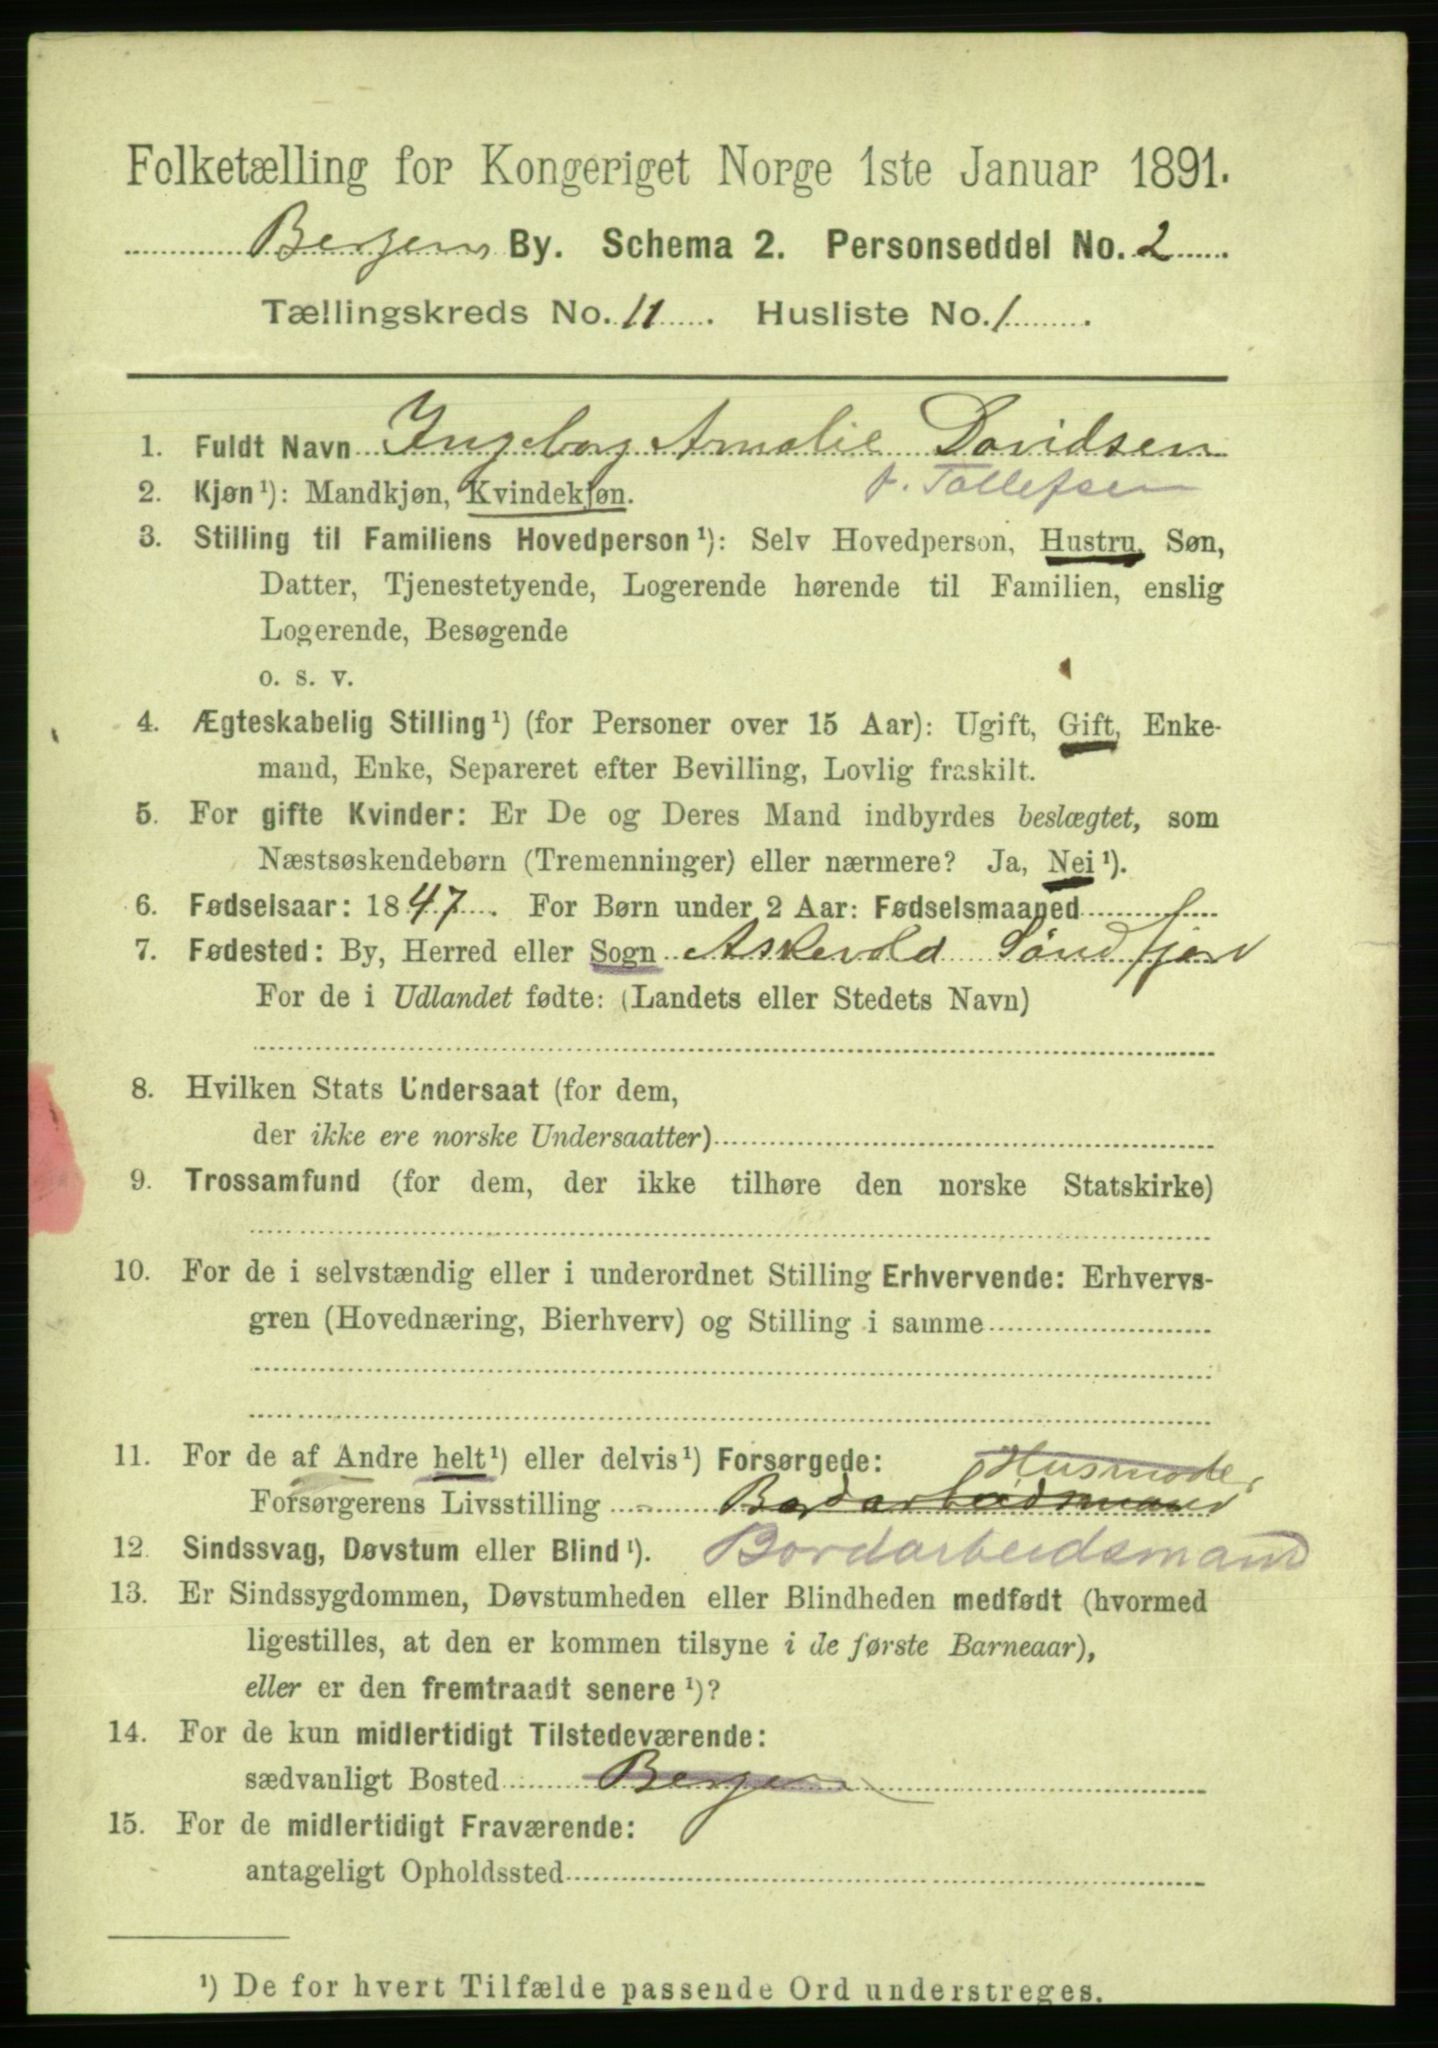 Folketælling for Kongeriget Norge 1ste Januar 1891.
Bergen By. Schema 2. Personseddel No. 2
Tællingskreds No. 11. Husliste No. 1.
1. Fuldt Navn Ingeborg Amalie Davidsen
f. Tollefsen
2. Kjøn¹): Mandkjøn, Kvindekjøn.
3. Stilling til Familiens Hovedperson¹): Selv Hovedperson, Hustru, Søn,
Datter, Tjenestetyende, Logerende hørende til Familien, enslig
Logerende, Besøgende
o. s. v.
4. Ægteskabelig Stilling¹) (for Personer over 15 Aar): Ugift, Gift, Enke-
mand, Enke, Separeret efter Bevilling, Lovlig fraskilt.
5. For gifte Kvinder: Er De og Deres Mand indbyrdes beslægtet, som
Næstsøskendebørn (Tremenninger) eller nærmere? Ja, Nei¹).
6. Fødselsaar: 1847. For Børn under 2 Aar: Fødselsmaaned
7. Fødested: By, Herred eller Sogn Askevold Söndfjord
For de i Udlandet fødte: (Landets eller Stedets Navn)
8. Hvilken Stats Undersaat (for dem,
der ikke ere norske Undersaatter)
9. Trossamfund (for dem, der ikke tilhøre den norske Statskirke)
10. For de i selvstændig eller i underordnet Stilling Erhvervende: Erhvervs-
gren (Hovednæring, Bierhverv) og Stilling i samme
11. For de af Andre helt¹) eller delvis¹) Forsørgede: Husmoder
Forsørgerens Livsstilling Bordarbeidsmand
12. Sindssvag, Døvstum eller Blind¹). Bordarbeidsmand
13. Er Sindssygdommen, Døvstumheden eller Blindheden medfødt (hvormed
ligestilles, at den er kommen tilsyne i de første Barneaar),
eller er den fremtraadt senere¹)?
14. For de kun midlertidigt Tilstedeværende:
sædvanligt Bosted Bergen
15. For de midlertidigt Fraværende:
antageligt Opholdssted
¹) De for hvert Tilfælde passende Ord understreges.